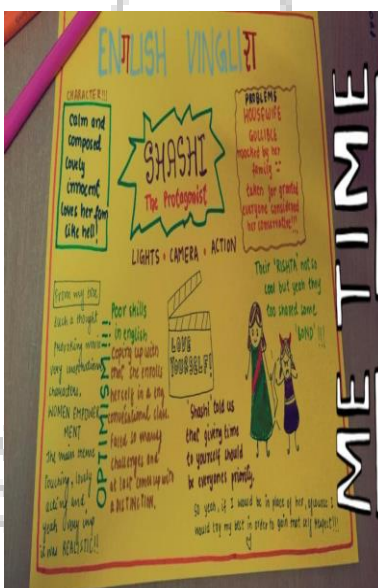 ENगLISH VINGLIश
CHARACTER!!!
Calm and
composed
Lovely
innocent
Loves her fam
like hell!
SHASHI
The Protagonist
PROBLEMS
HOUSEWIFE
GULLIBLE
mocked by her
family
taken for granted
everyone considered
her conservative!!!
LIGHTS • CAMERA • ACTION
Their "RISHTA" not so
cool but yeah they
too shared some
"BOND"!!!
From my side
Such a thought
provoking movie
very captivating
characters,
WOMEN EMPOWER
MENT
the main theme
touching, lovely
acting and
yeah
it was REALISTIC!!!
OPTIMISM!!!
Poor skills
in english
Coping up with
that she enrolls
herself in a eng
conversational class
faced so many
challenges and
at last comes up with
a DISTINCTION.
LOVE
YOURSELF!
Shashi told us
that giving time
to yourself should
be everyone's priority.
So yeah, if I would be in place of her, ofcourse I
would try my best in order to gain that self respect!!!
ME TIME